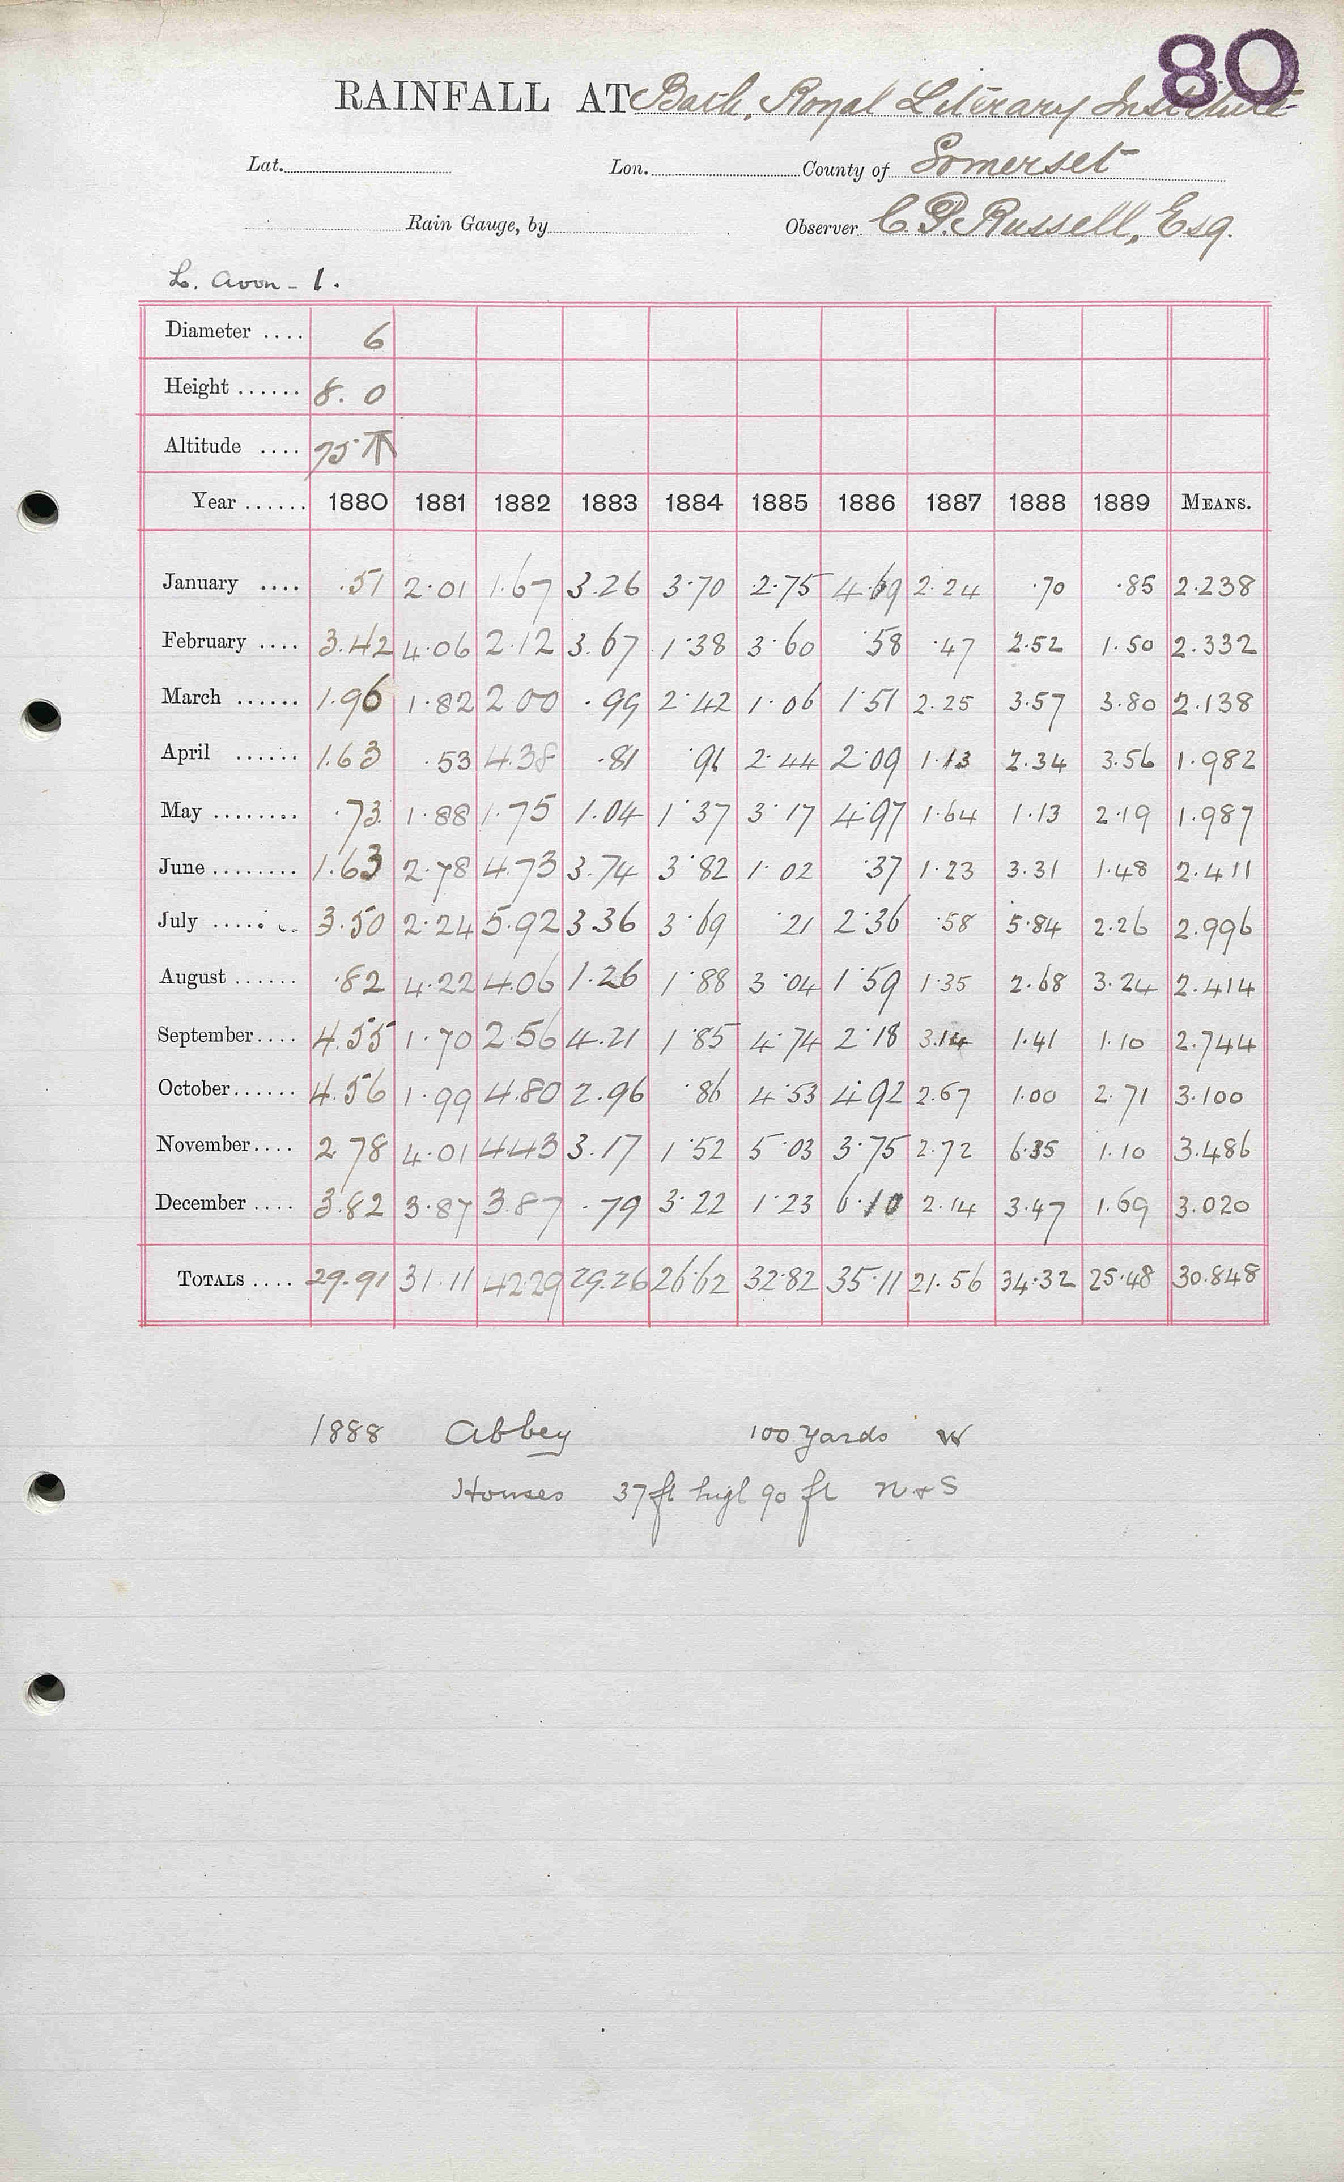 80
RAINFALL AT Bath, Royal Literary Institute
Lat. Lon. County of Somerset
Rain Gauge, by Observer C.P. Russell, Esq.
L. Avon - 1.
Diameter .... 6
Height ...... 8. 0
Altitude .... 75
Year ...... 1880 1881 1882 1883 1884 1885 1886 1887 1888 1889 MEANS.
January .... .51 2.01 1.67 3.26 3.70 2.75 4.69 2.24 .70 .85 2.238
February .... 3.42 4.06 2.12 3.67 1.38 3.60 .58 .47 2.52 1.50 2.332
March ...... 1.96 1.82 2.00 .99 2.42 1.06 1.51 2.25 3.57 3.80 2.138
April ...... 1.63 .53 4.38 .81 .91 2.44 2.09 1.13 2.34 3.56 1.982
May ........ .73 1.88 1.75 1.04 1.37 3.17 4.97 1.64 1.13 2.19 1.987
June ........ 1.63 2.78 4.73 3.74 3.82 1.02 .37 1.23 3.31 1.48 2.411
July ...... 3.50 2.24 5.92 3.36 3.69 .21 2.36 .58 5.84 2.26 2.996
August ...... .82 4.22 4.06 1.26 1.88 3.04 1.59 1.35 2.68 3.24 2.414
September.... 4.55 1.70 2.56 4.21 1.85 4.74 2.18 3.14 1.41 1.10 2.744
October...... 4.56 1.99 4.80 2.96 .86 4.53 4.92 2.67 1.00 2.71 3.100
November.... 2.78 4.01 4.43 3.17 1.52 5.03 3.75 2.72 6.35 1.10 3.486
December .... 3.82 3.87 3.87 .79 3.22 1.23 6.10 2.14 3.47 1.69 3.020
TOTALS .... 29.91 31.11 42.29 29.26 26.62 32.82 35.11 21.56 34.32 25.48 30.848
1888 Abbey 100 yards W
Houses 37 ft high 90 ft N & S